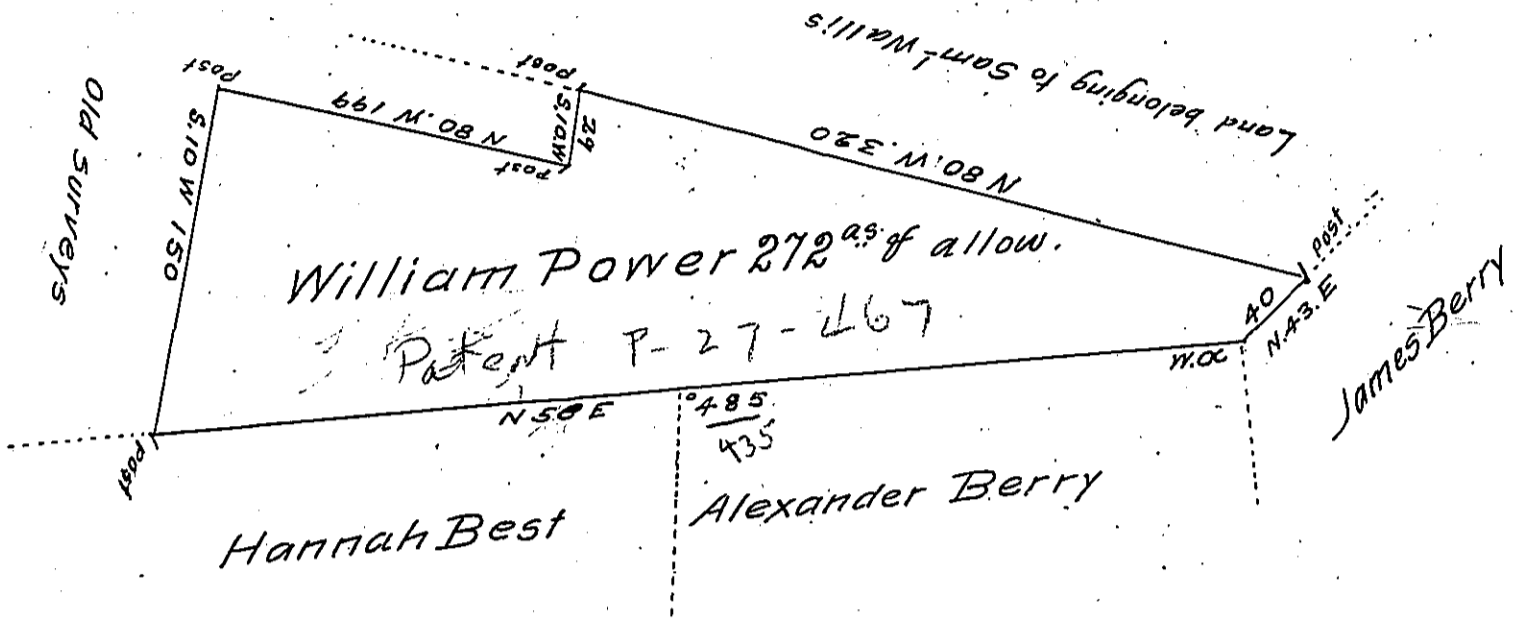 Land belonging to Sam.^l Wallis
Old Surveys
Post
N 80. W 199
Post
S. 10 W
29
Post
N 80. W. 320
S. 10 W 150
William Power 272 a.s. of allow.
Patent P-27-467
Post
40
N. 43. E
James Berry
W. O.
N 50 E
485
435
Post
Hannah Best
Alexander Berry